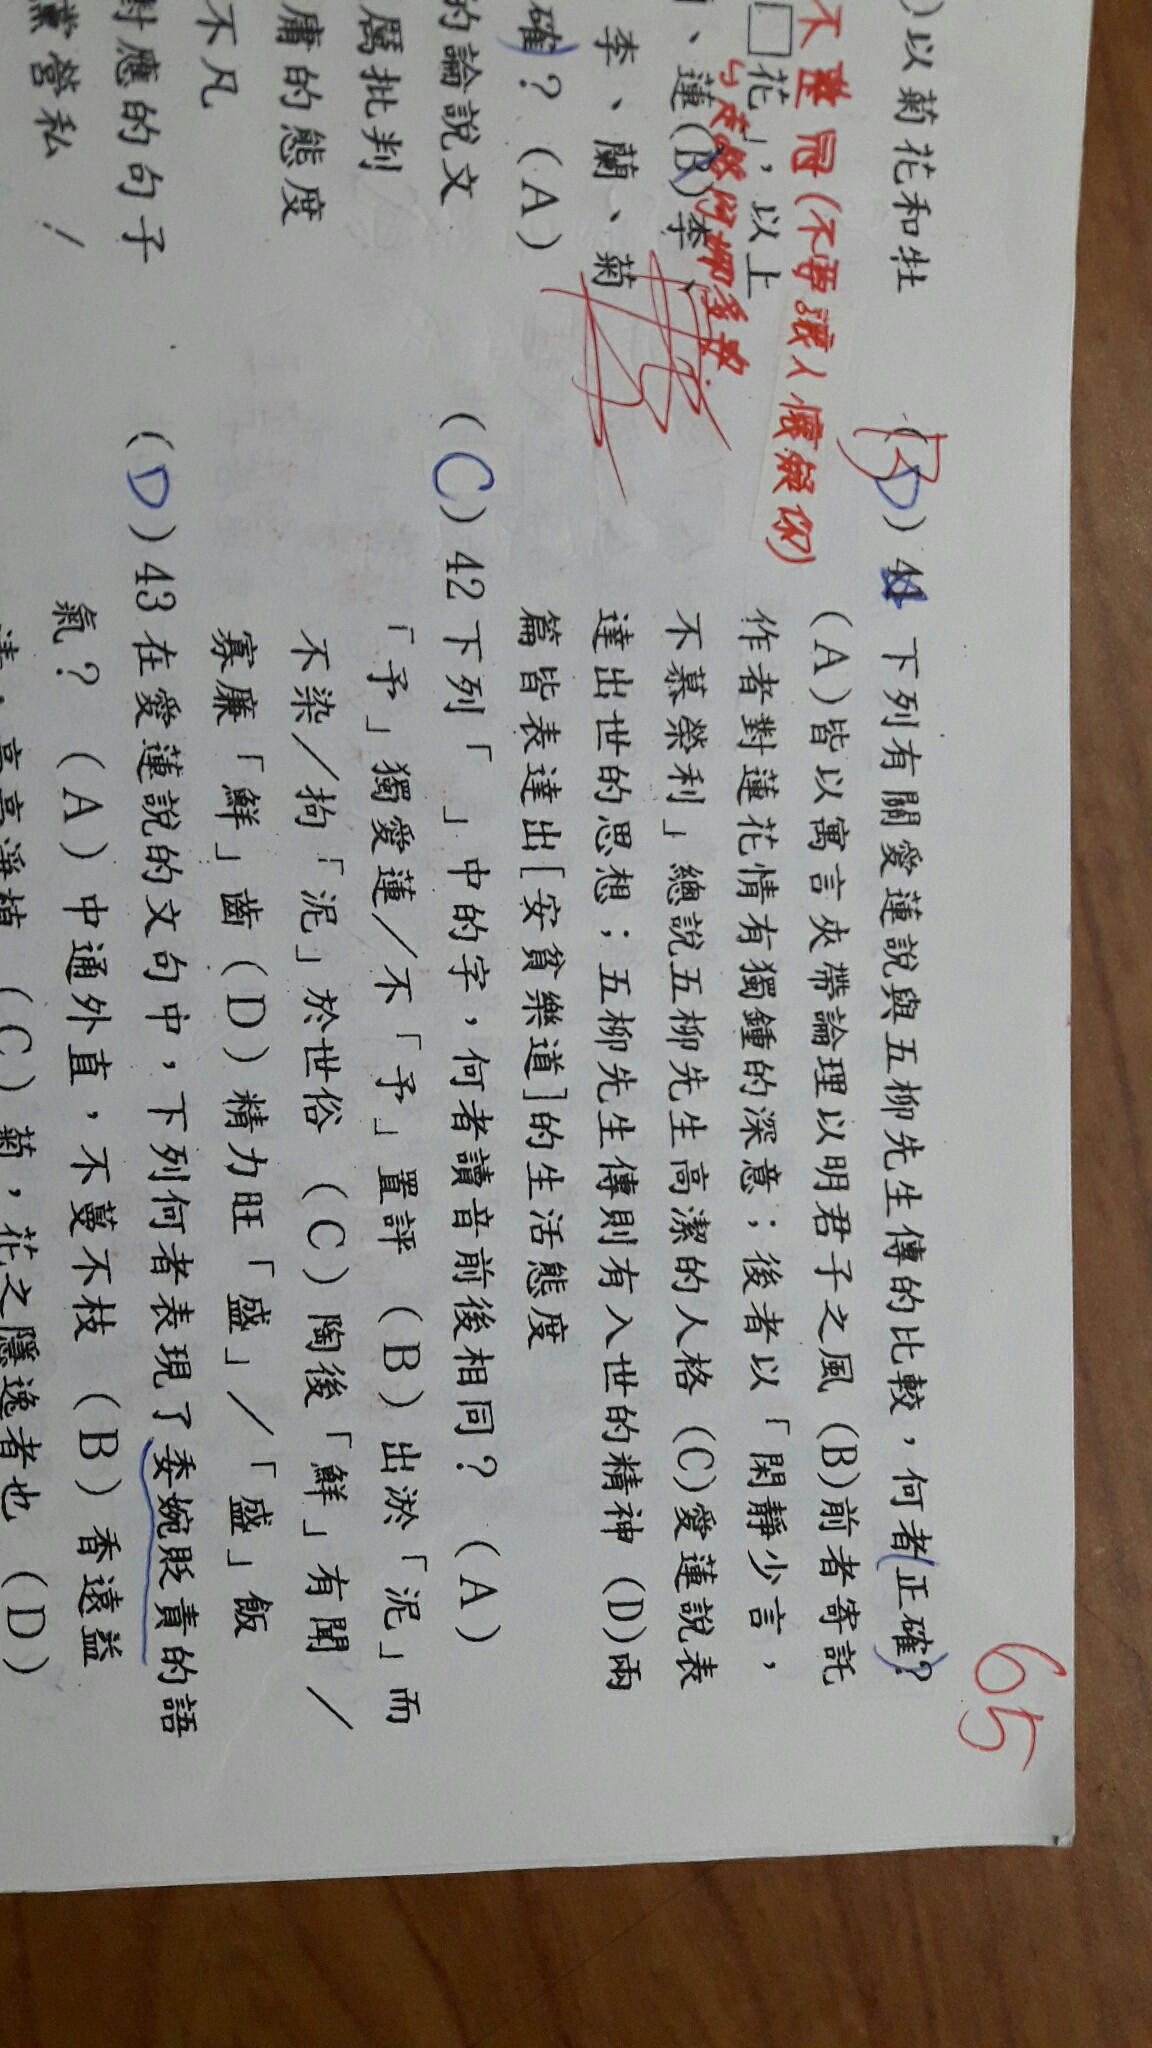 65
)以菊花和牡
不
整冠(不要讓人懷疑你)
□花」,以上
、蓮(B)李、
李、蘭、菊
確?(A)
的論說文
厲批判
庸的態度
不凡
對應的句子
黨營私!
(D)41下列有關愛蓮說與五柳先生傳的比較,何者正確?
B
(A)皆以寓言夾帶論理以明君子之風(B)前者寄託
作者對蓮花情有獨鍾的深意;後者以「閑靜少言,
不慕榮利」總說五柳先生高潔的人格(C)愛蓮說表
達出世的思想;五柳先生傳則有入世的精神(D)兩
篇皆表達出[安貧樂道]的生活態度
(C)42下列「 」中的字,何者讀音前後相同?(A)
「予」獨愛蓮/不「予」置評(B)出淤「泥」而
不染/拘「泥」於世俗(C)陶後「鮮」有聞/
寡廉「鮮」齒(D)精力旺「盛」/「盛」飯
(D)43在愛蓮說的文句中,下列何者表現了委婉貶責的語
氣?(A)中通外直,不蔓不枝(B)香遠益
清,亭亭淨植(C)菊,花之隱逸者也(D)